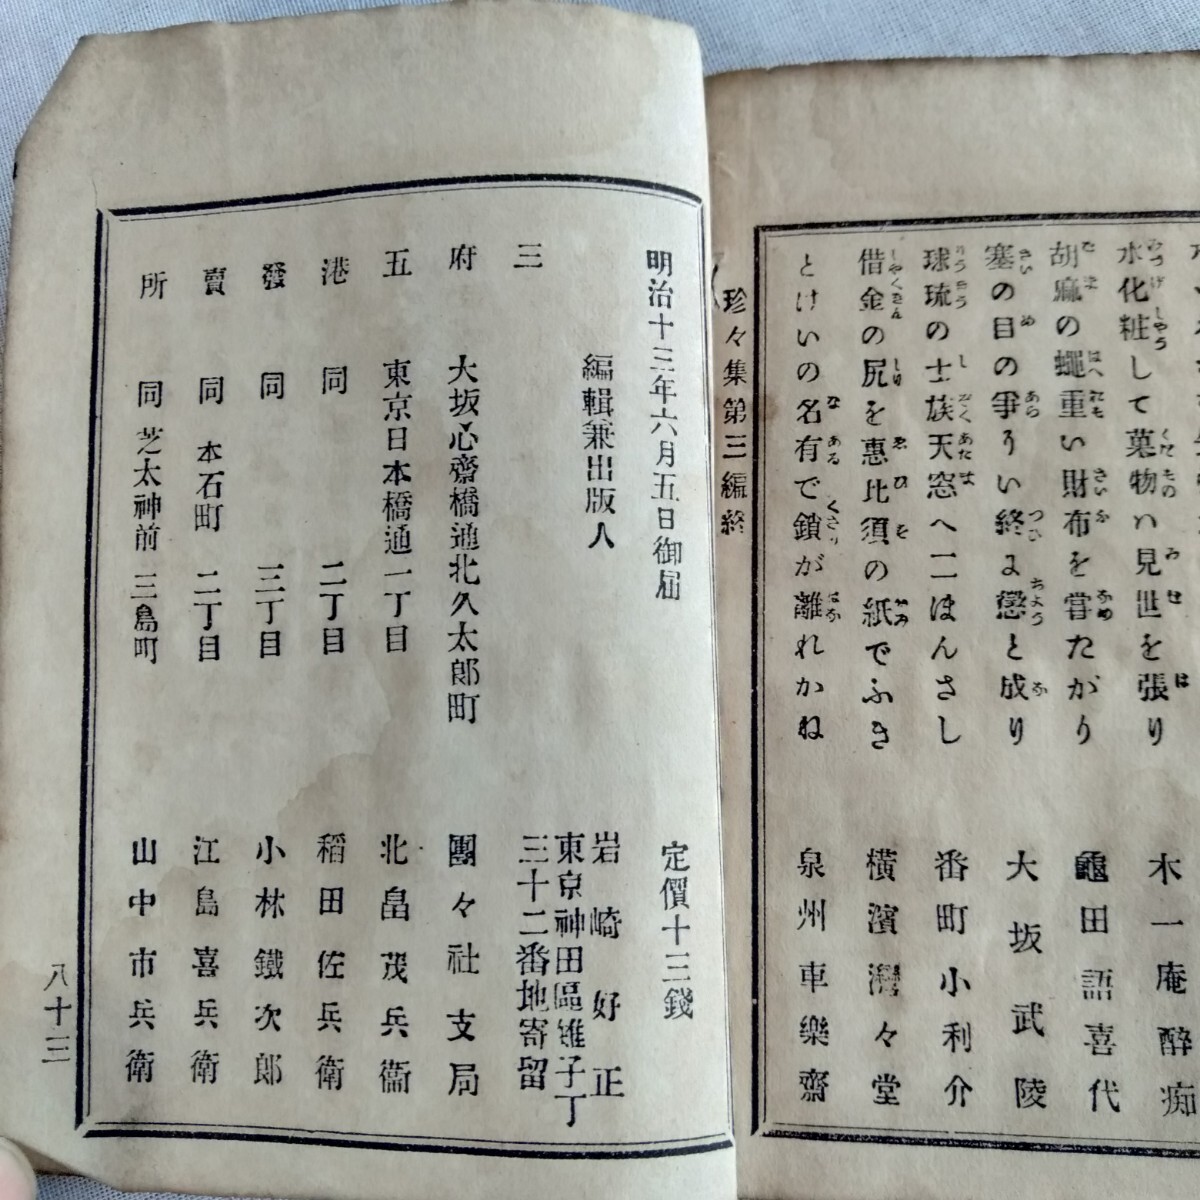 水化粧して菓物ハ見世を張り 木一庵酔痴
胡麻の蠅重い財布を嘗たがり 龜田語喜代
塞の目の爭うい終よ懲と成り 大坂武陵
球琉の士族天窓へ二ほんさし 番町小利介
借金の尻を惠比須の紙でふき 横濱灣々堂
とけいの名有で鎖が離れかね 泉州車樂齋
珍々集第三編終
明治十三年六月五日御届 定價十三錢
編輯兼出版人 岩崎好正
東京神田區雉子丁
三十二番地寄留
三
府 大坂心齋橋通北久太郎町 團々社支局
五 東京日本橋通一丁目 北畠茂兵衞
港 同 二丁目 稲田佐兵衛
發 同 三丁目 小林鐵次郎
賣 同 本石町 二丁目 江島喜兵衛
所 同 芝太神前 三島町 山中市兵衛
八十三